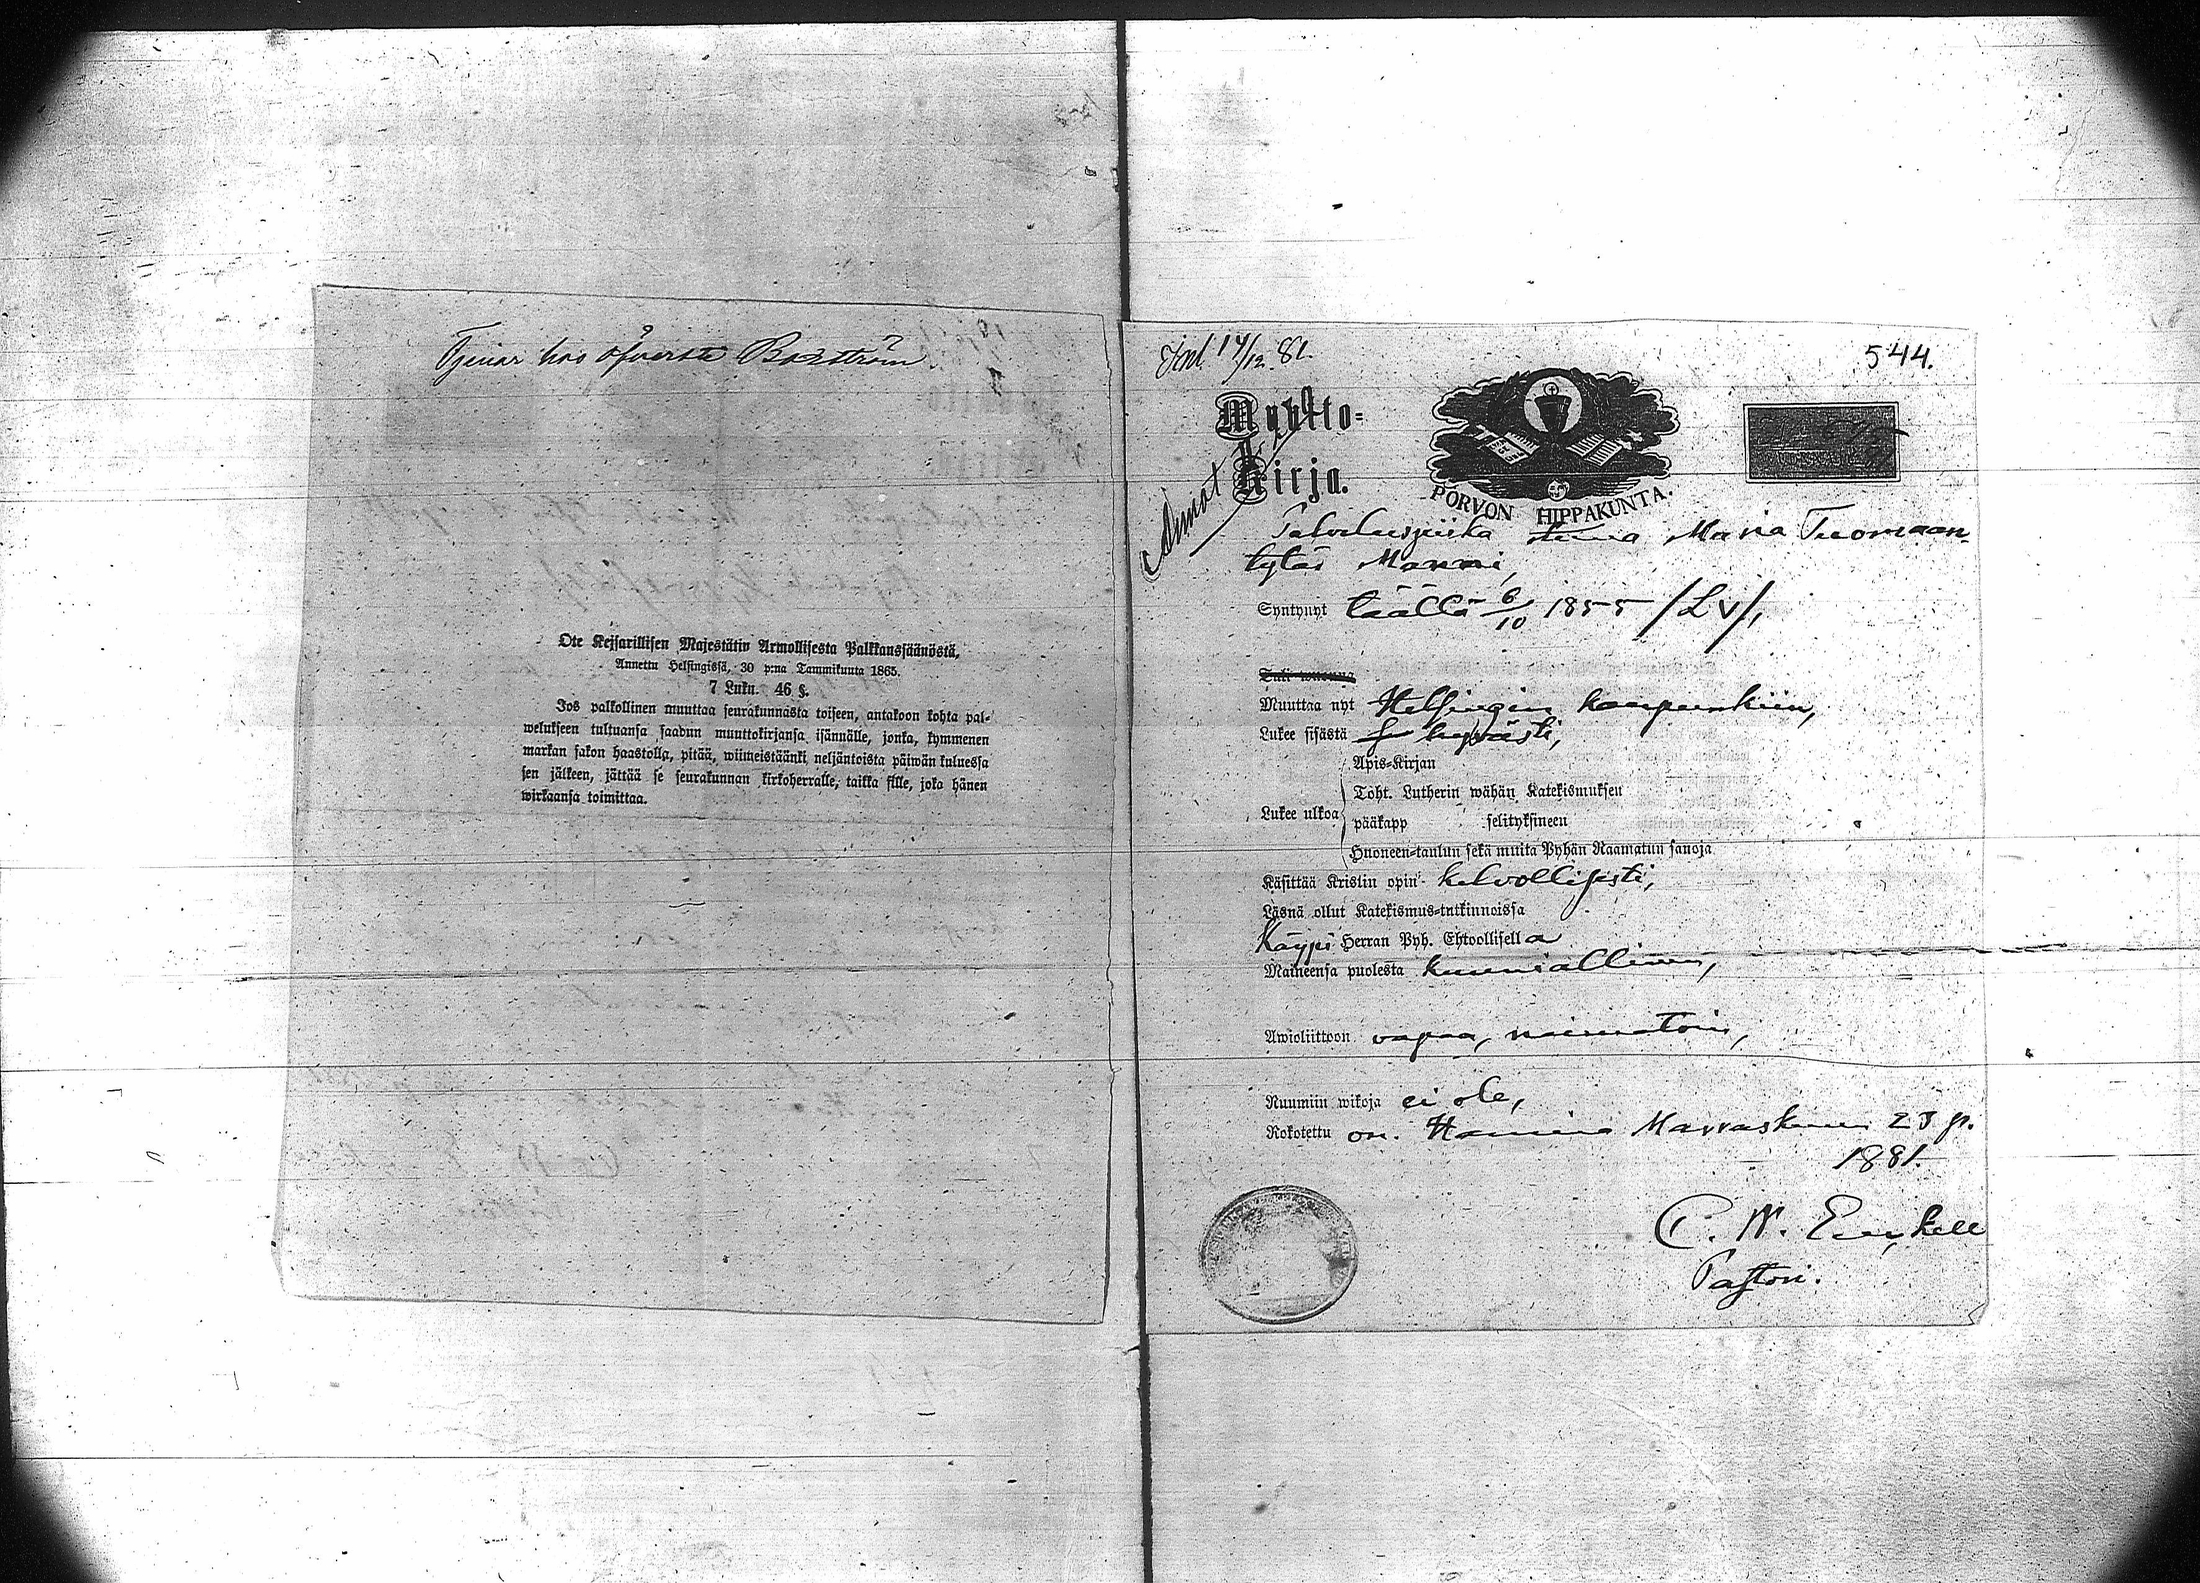 Tjenar hos öfverste Boxström.
Ote Keisarillisen Majestätin Armollisesta Palkkaussäänöstä,
Annettu Helsingissä, 30 p:nä Tammikuuta 1865.
7 Luku. 46 §.
Jos palkollinen muuttaa seurakunnasta toiseen, antakoon kohta pal-
welukseen tultuansa saadun muuttokirjansa isännälle, jonka, kymmenen
markan sakon haastolla, pitää, wiimeistäänki neljäntoista päiwän kuluessa
sen jälkeen, jättää se seurakunnan kirkoherralle, taikka sille, joka hänen
wirkaansa toimittaa.
14/12. 81.
544.
Muutto-
Kirja.
PORVON HIPPAKUNTA.
Palveluspiika Maria Tuomaan
tytär Manni,
Syntynyt täällä 6/10 1855 /LV/,
Muuttaa nyt Helsingin kaupunkiin,
Lukee sisästä hyvästi,
Apis-Kirjan
Toht. Lutherin wähän Katekismuksen
Lukee ulkoa
pääkapp selityksineen
Huoneen-taulun sekä muita Pyhän Raamatun sanoja
Käsittää Kristin opin kelvollisesti,
Läsnä ollut Katekismus-tutkinnoissa
Käypi Herran Pyh. Ehtoollisella
Maineensa puolesta kunniallinen,
Awioliittoon vapaa, naimatoin,
Ruumiin wikoja ei ole,
Rokotettu on. Hamina Marraskuun 23 p.
1881.
C. W. Enckell
Pastori.